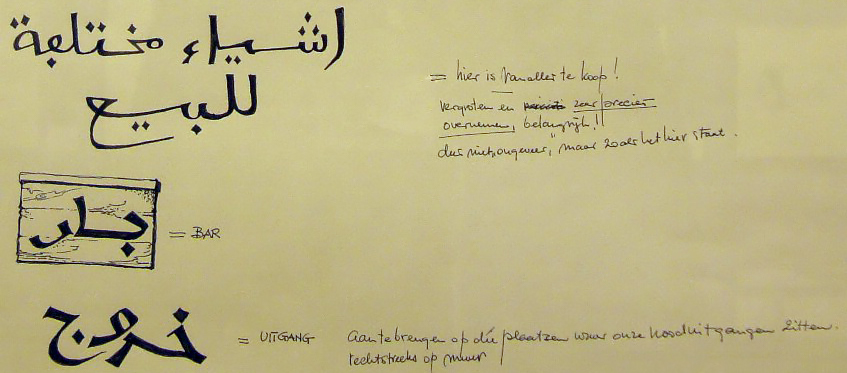 اشياء مختلفة
للبيع
= hier is van alles te koop!
vergroten en zeer precies
overnemen, belangrijk!!
dus niet „ongeveer", maar zoals het hier staat.
بار
= BAR
خروج
= UITGANG
aan te brengen op die plaatsen waar onze nooduitgangen zitten.
rechtstreeks op muur